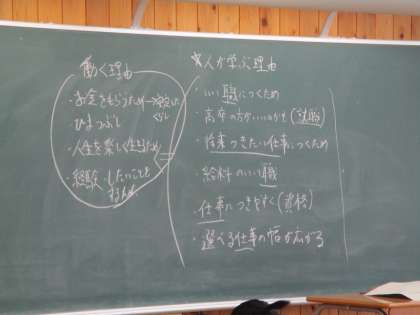 働く理由
・お金をもらうため→安定した
くらし
ひまつぶし
・人生を楽しく生きるため
・経験、したいことを
するため
人が学ぶ理由
・いい職につくため
・高卒の方がいいから(就職)
・将来つきたい仕事につくため
・給料のいい職
・仕事につきやすく(資格)
・選べる仕事の幅が広がる